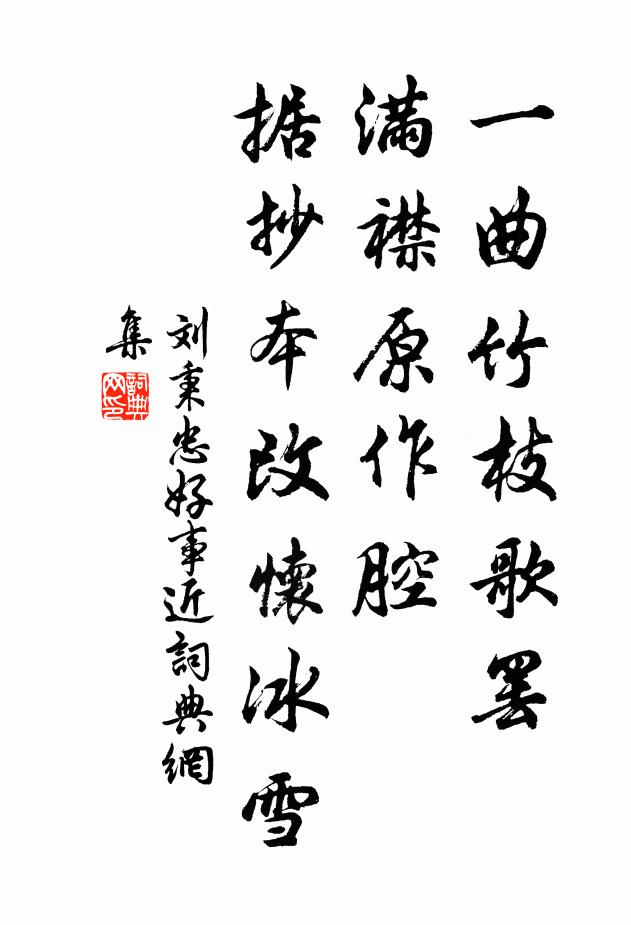 一曲竹枝歌罢
满襟原作腔
据抄本改懷冰雪
刘秉忠好事近詞典網
集
詞典
网印